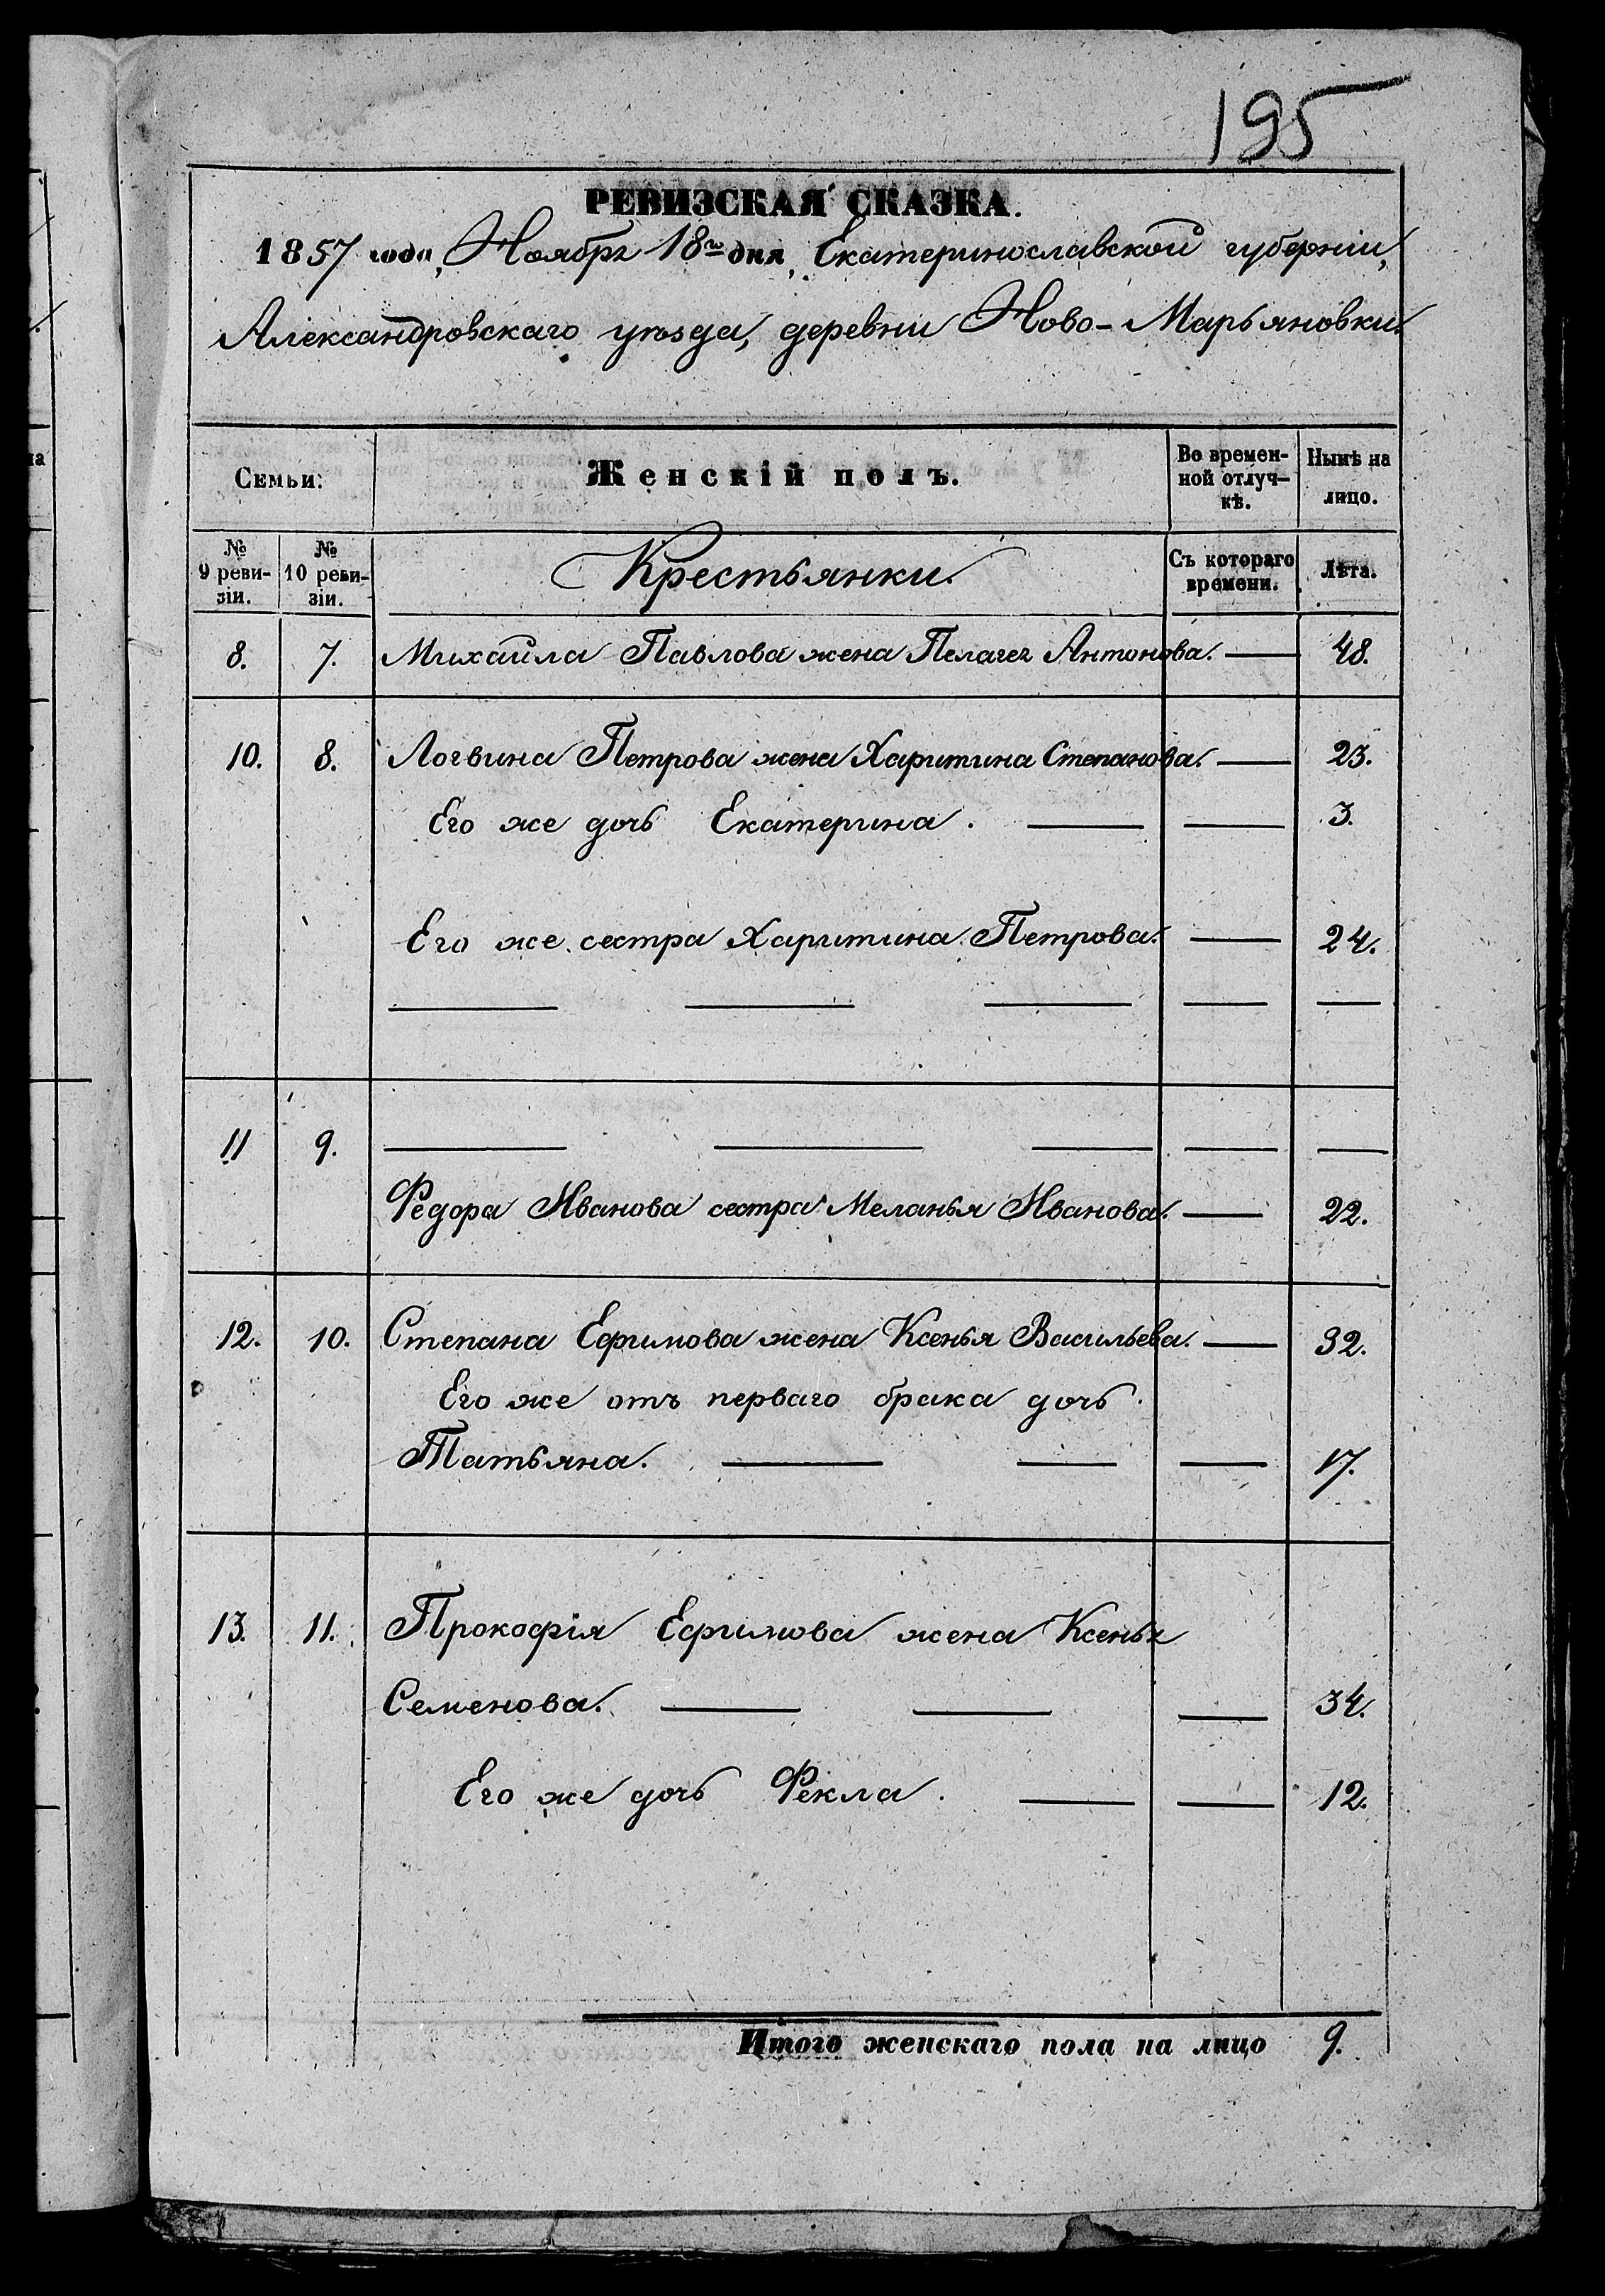 195
РЕВИЗСКАЯ СКАЗКА.
1857 года, Ноября 18го дня, Екатеринославской губерніи,
Александровскаго уѣзда, деревни Ново-Марьяновки.
Семьи: Женскій полъ. Во времен-ной отлуч-кѣ. Нынѣ на лицо.
№ 9 реви-зіи. № 10 реви-зіи. Крестьянки. Съ котораго времени. Лѣта.
8. 7. Михайла Павлова жена Пелагея Антонова. — 48.
10. 8. Логвина Петрова жена Харитина Степанова. — 23.
Его же дочь Екатерина. — — 3.
Его же сестра Харитина Петрова. — 24.
— — — — —
11 9. — — — — —
Федора Иванова сестра Меланья Иванова. — 22.
12. 10. Степана Ефимова жена Ксенья Васильева. — 32.
Его же отъ перваго брака дочь
Татьяна. — — — 17.
13. 11. Прокофія Ефимова жена Ксенья
Семенова. — — — 34.
Его же дочь Фекла. — — 12.
Итого женскаго пола на лицо 9.